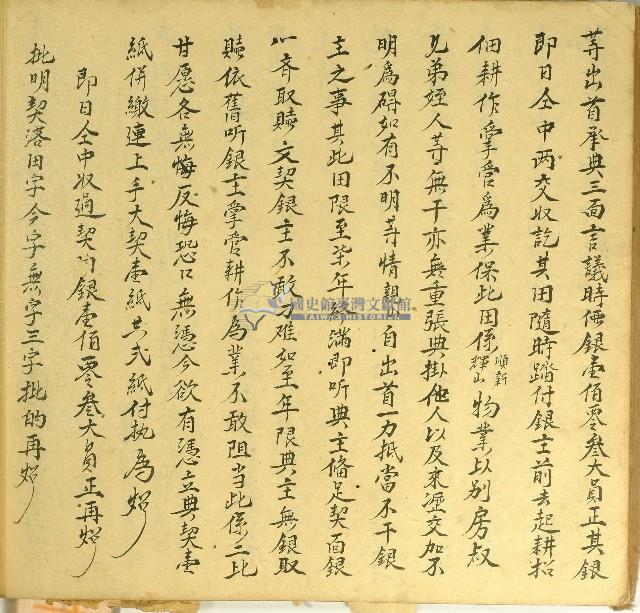 等出首承典三面言議時值銀壹佰零叁大員正其銀
即日仝中两交收訖其田隨時踏付銀主前去起耕招
佃耕作掌管為業保此田係順新輝山物業以別房叔
兄弟姪人等無干亦無重張典掛他人以及來歷交加不
明為碍如有不明等情親自出首一力抵當不干銀
主之事其此田限至柒年終滿即听典主俻足契面銀
取贖文契銀主不敢刁难如至年限典主無銀取
贖依舊听銀主掌管耕作為業不敢阻当此係二比
甘愿各無悔反悔恐口無憑今欲有憑立典契壹
紙併繳連上手大契壹紙共弍紙付执為炤
即日仝中收過契内銀壹佰零叁大員正再炤
批明契落田字今字無字三字批的再炤
國史館臺灣文獻館
TAIWAN HISTORICA